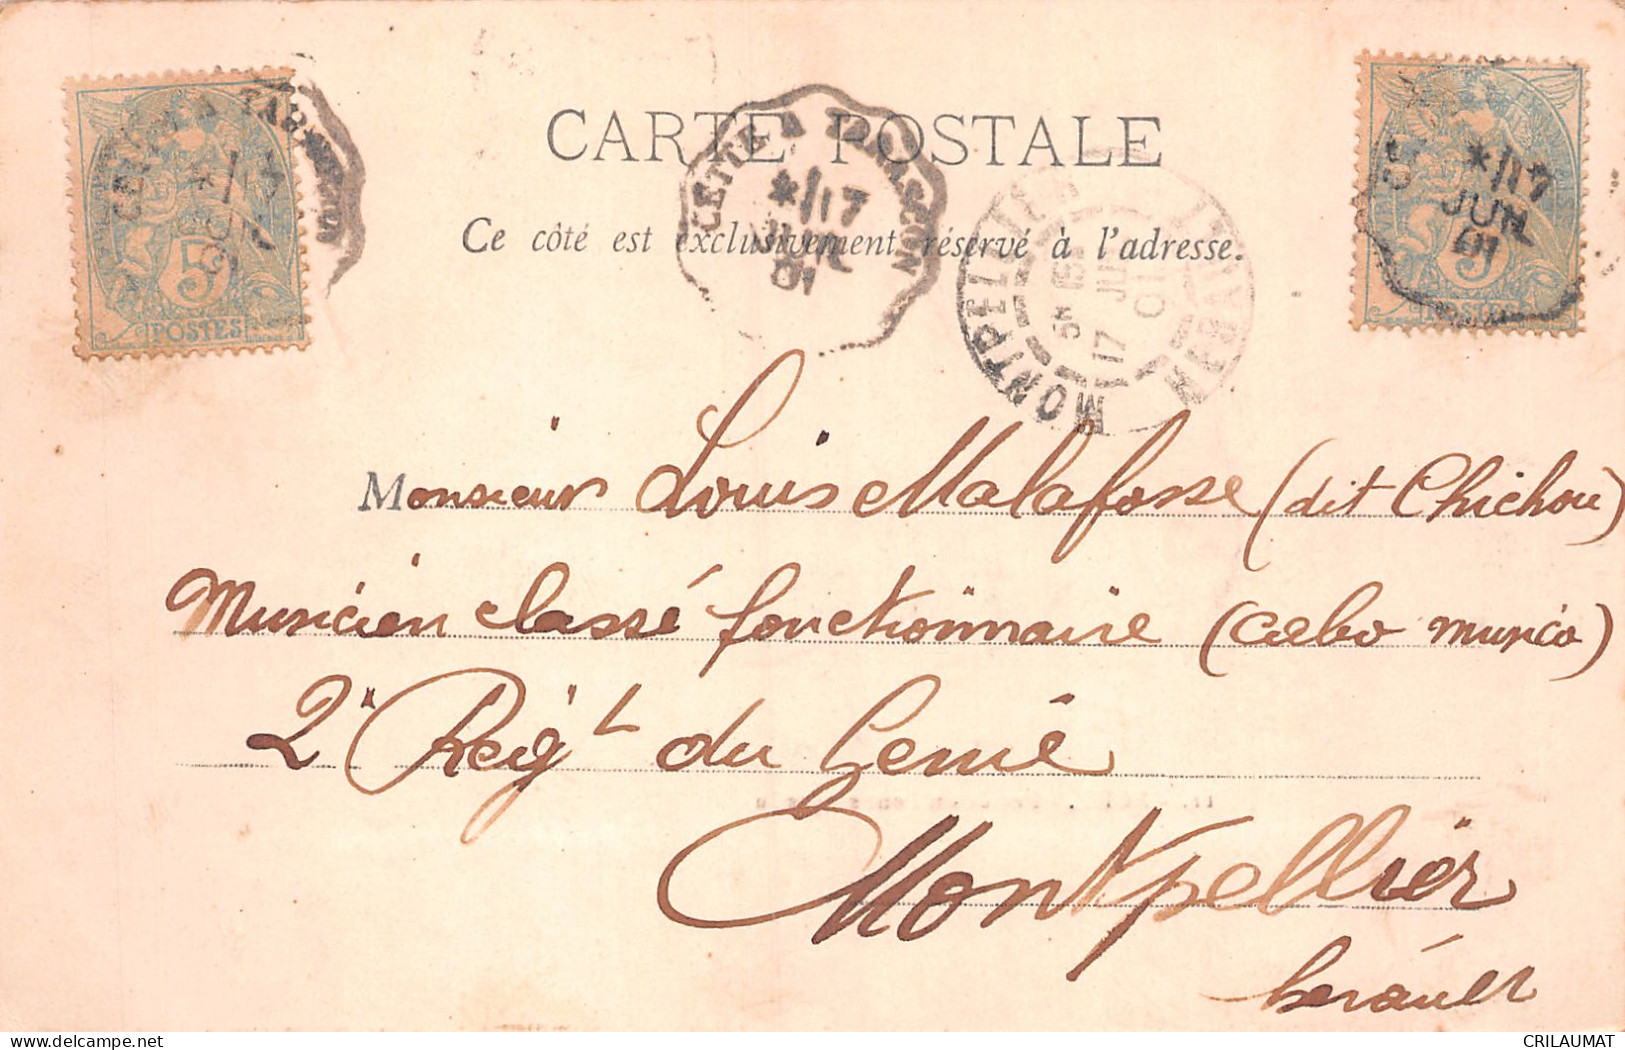 CARTE POSTALE
Ce côté est exclusivement réservé à l'adresse.
CETTE A TARASCON
5
POSTES
CETTE A TARASCON
*/17
JUIN
01
MONTPELLIER HERAULT
5E
17 JUIN
01
*/17
JUIN
01
5
POSTES
Monsieur Louis Malafosse (dit Chichou)
Musicien classé fonctionnaire (Cabo musico)
2e Regt du Genie
Montpellier
herault
CRILAUMAT